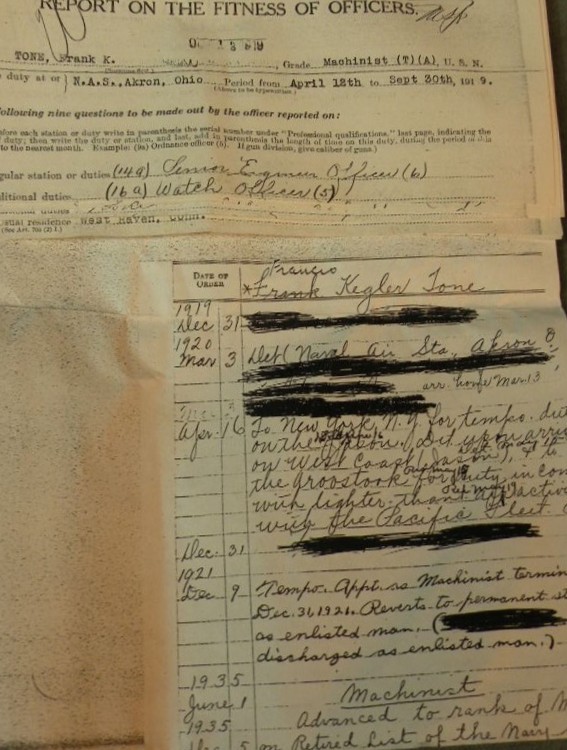 REPORT ON THE FITNESS OF OFFICERS.
TONE, Frank K. Grade Machinist (T)(A), U.S.N.
duty at or N.A.S., Akron, Ohio. Period from April 12th to Sept 30th, 1919.
following nine questions to be made out by the officer reported on:
each station or duty write in parenthesis the serial number under "Professional qualifications," last page, indicating the
duty; then write the duty or station, and last, add in parenthesis the length of time on this duty, during the period of this
to the nearest month. Example: (9a) Ordnance officer (5). If gun division, give caliber of guns.)
gular station or duties (14a) Senior Engineer Officer (6)
ditional duties (16a) Watch Officer (5)
sual residence West Haven, Conn.
(See Art.
DATE OF
ORDER
Francis
*Frank Kegler Tone
1919
Dec 31
1920
Mar 3 Det Naval Air Sta., Akron O.
arr. home Mar. 13
Apr. 16 To New York, N.Y. for tempo. dut
on the upon arriv
on West Coast
the aroostook for duty in con
with lighter-than-
with the Pacific Fleet
Dec. 31
1921
Dec 9 Tempo. Appt. as Machinist termin
Dec. 31, 1921. Reverts to permanent st
as enlisted man. (
discharged as enlisted man.)
1935
June 1 Machinist
1935 Advanced to rank of M
5 on Retired List of the Navy